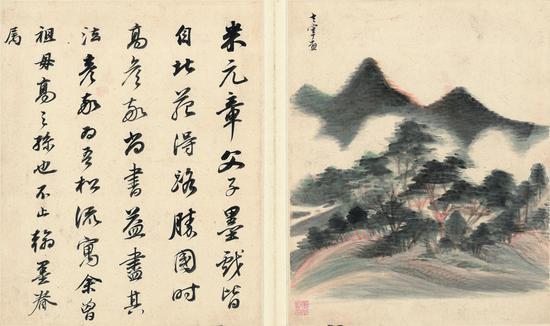 米元章父子墨戲皆
自北苑得路勝國时
高彦敬尚書益盡其
法彦敬为吾松流寓余曾
祖母高之孫也不止翰墨眷
属
玄宰画